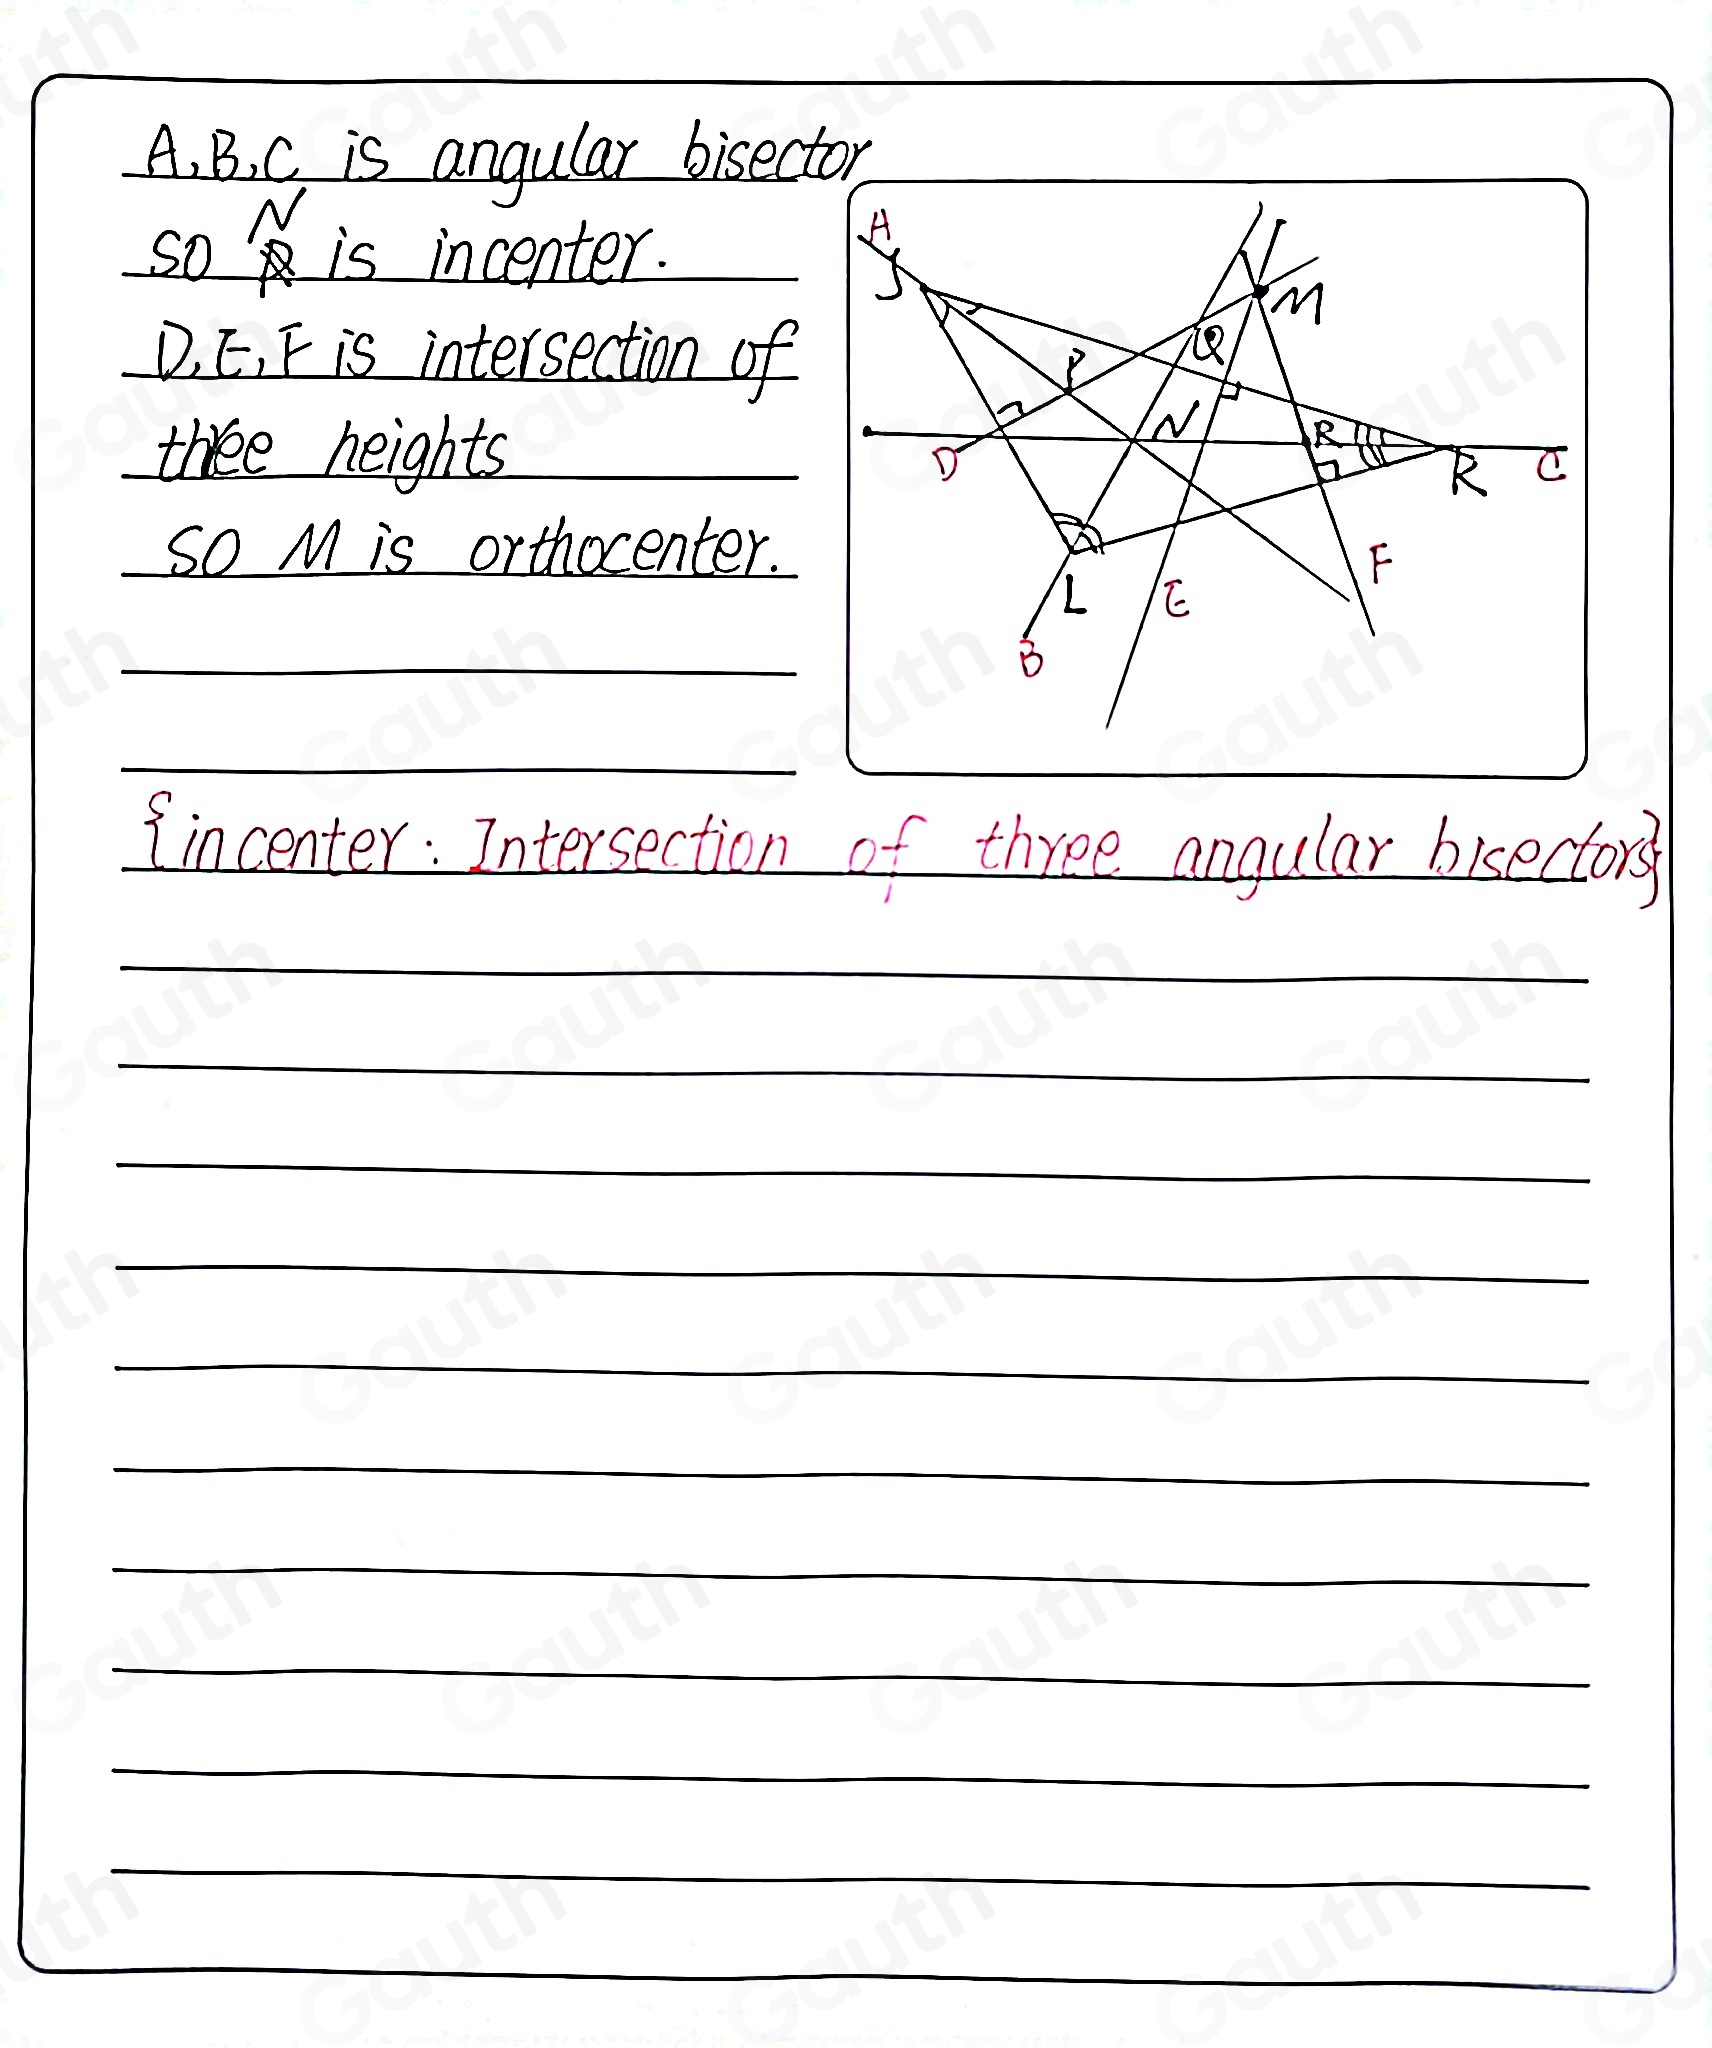 A,B,C is angular bisector
so N is incenter.
D,E,F is intersection of
three heights
so M is orthocenter.
A
J
M
Q
P
N
R
D
R
C
F
L
E
B
{incenter: Intersection of three angular bisectors}
Gauth